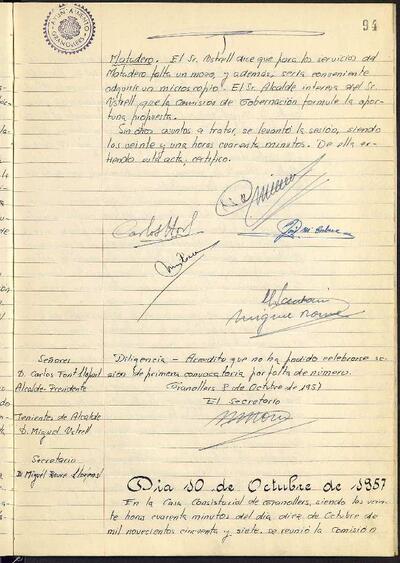 AYUNTAMIENTO
GRANOLLERS
94
Matadero. El Sr. Vstrell dice que para los servicios del
Matadero falta un mozo, y además, sería conveniente
adquirir un microscopio. El Sr. Alcalde interesa del Sr.
Vstrell, que la Comisión de Gobernación formule la opor-
tuna propuesta.
Sin otros asuntos a tratar, se levantó la sesión, siendo
las veinte y una horas cuarenta minutos. De ella ex-
tiendo esta acta, certifico.
Señores
D. Carlos Font Llopart
Alcalde-Presidente
Tenientes de Alcalde
D. Miguel Vstrell
Secretario
D. Miguel Roure
Diligencia - Acredito que no ha podido celebrarse se-
sión de primera convocatoria por falta de número.
Granollers 8 de Octubre de 1957
El Secretario
Día 10 de Octubre de 1957
En la Casa Consistorial de Granollers, siendo las vein-
te hora cuarenta minutos del día diez de Octubre de
mil novecientos cincuenta y siete, se reunió la Comisión